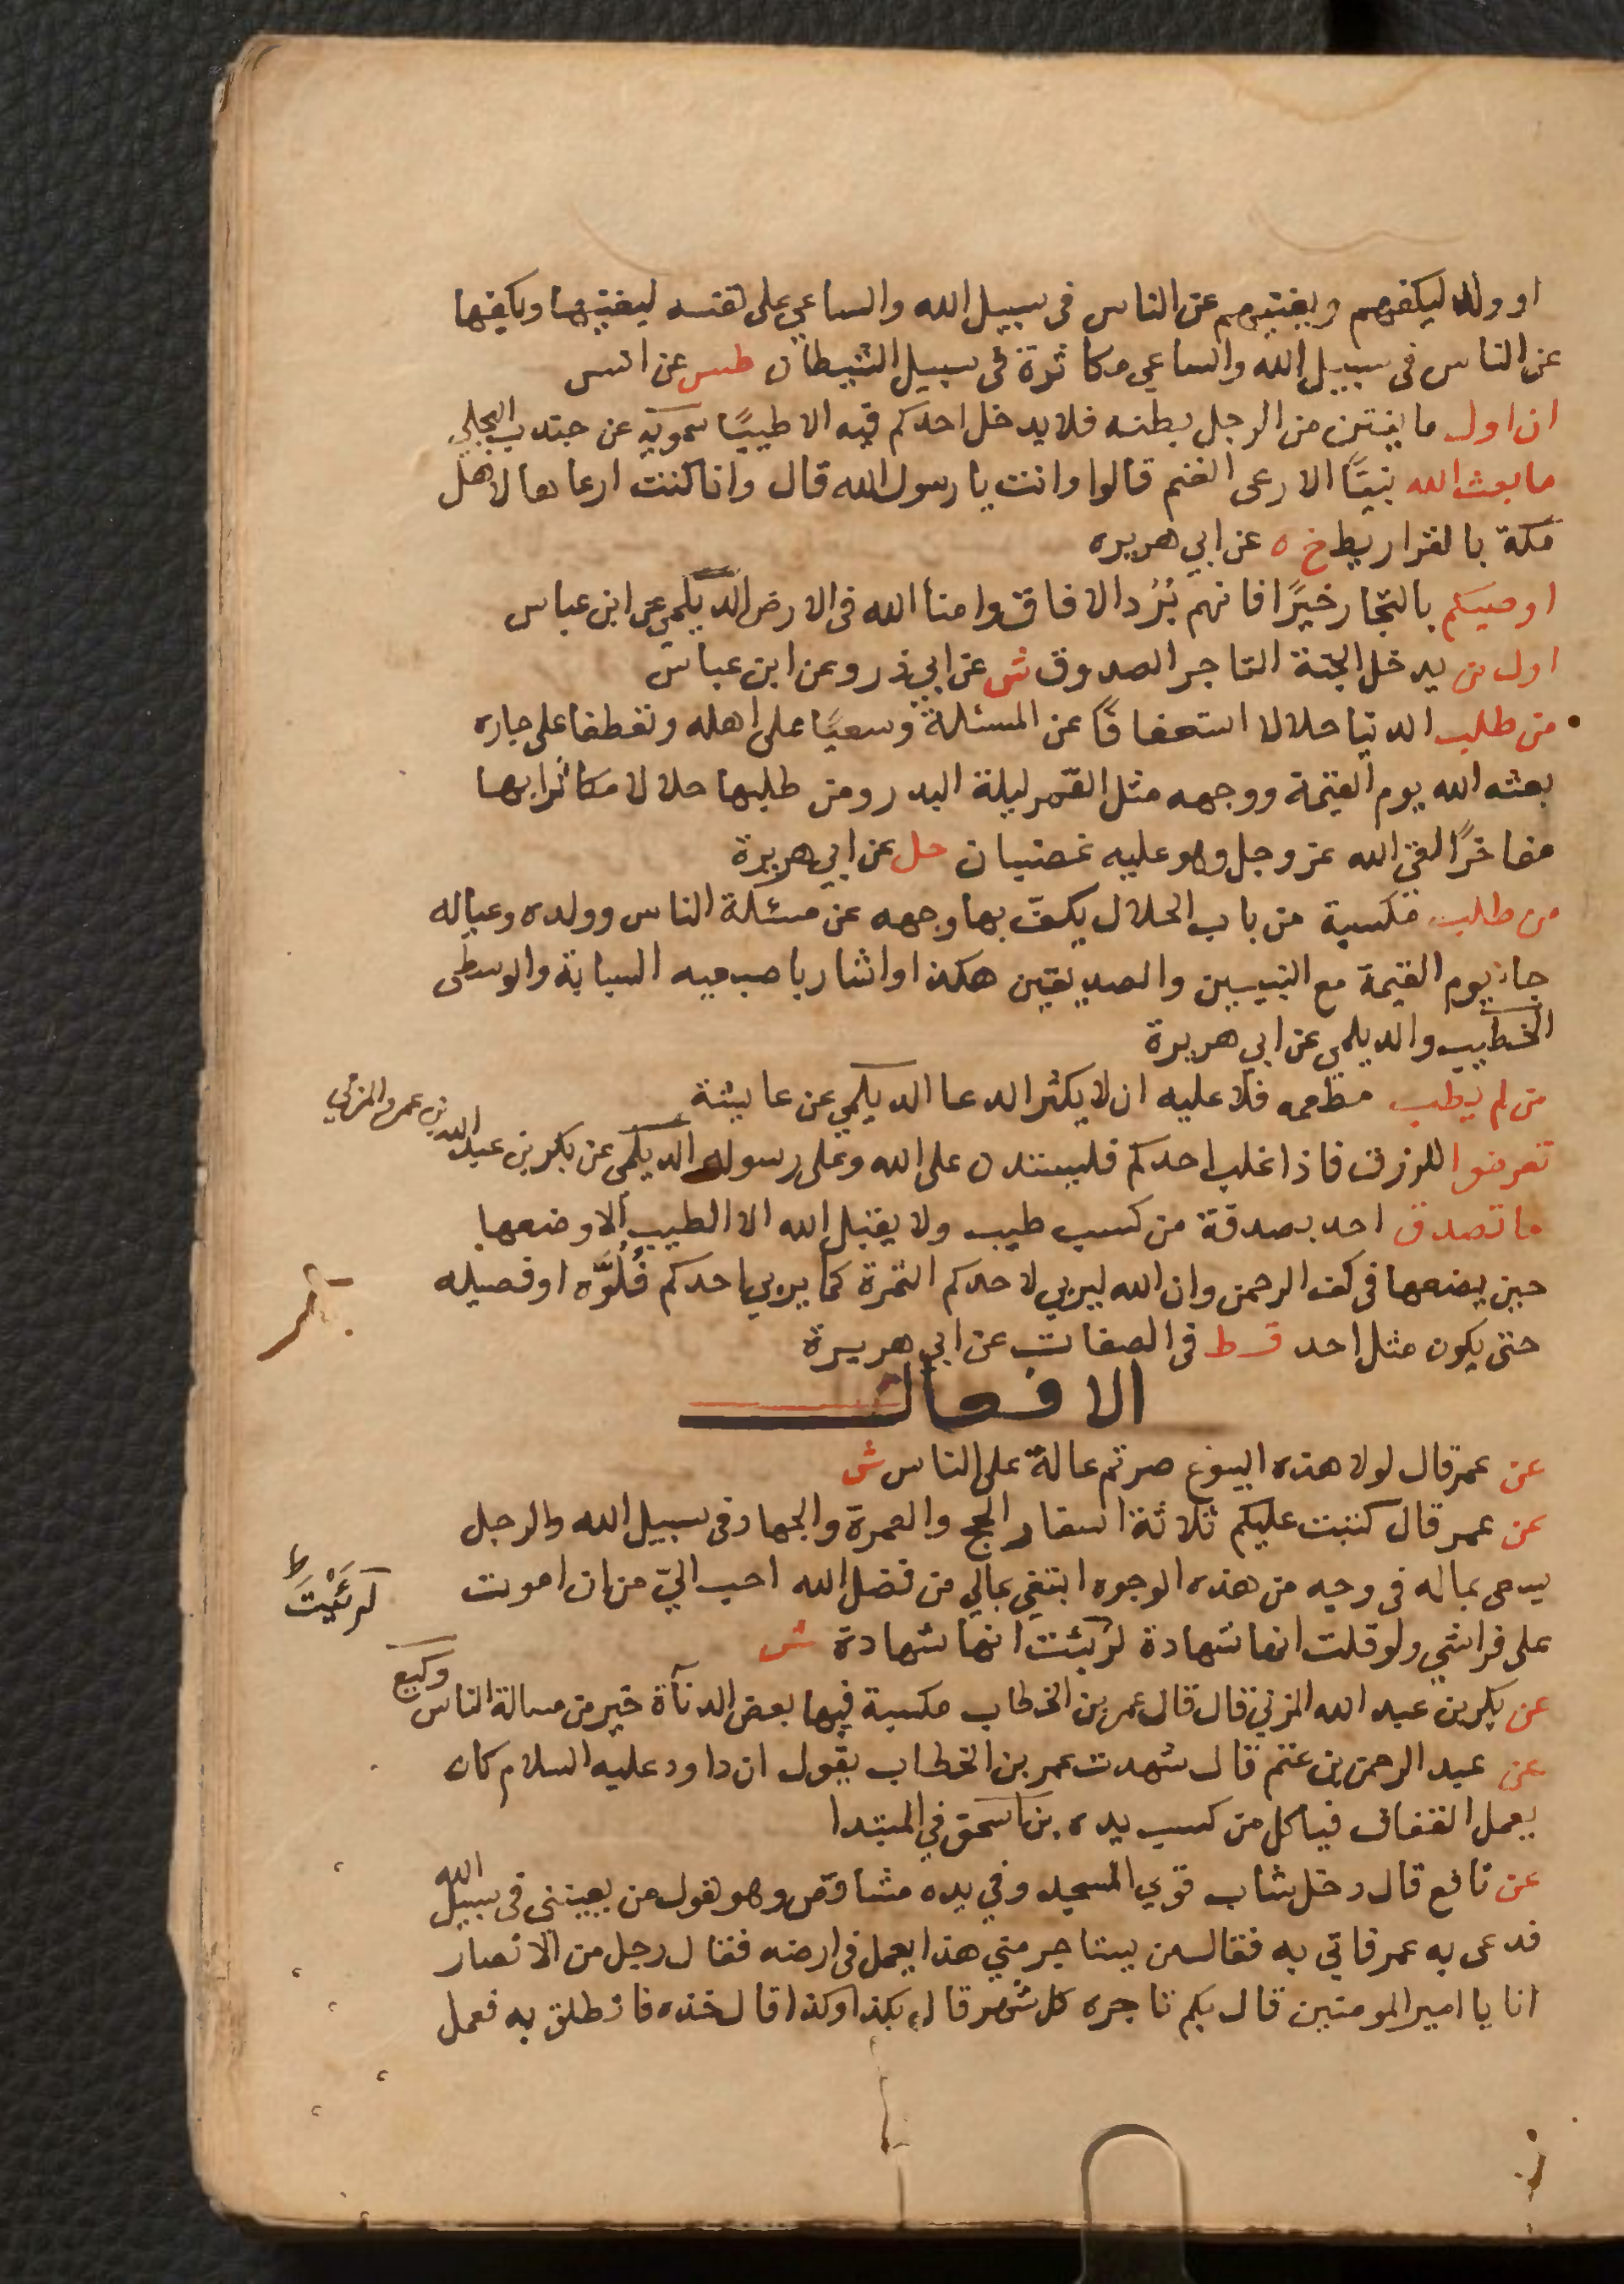 او ولده ليكفهم ويغنيهم عن الناس فى سبيل الله والساعي على نفسه ليغنيها ويكفيها
عن الناس فى سبيل الله والساعي مكاثرة فى سبيل الشيطان طس عن انس
ان اول ما ينتن من الرجل بطنه فلا يدخل احدكم فيه الا طيبًا سمويه عن جندب البجلي
ما بعث الله نبيًّا الا رعى الغنم قالوا وانت يا رسول الله قال وانا كنت ارعاها لاهل
مكة بالقراريط خ ه عن ابي هريره
اوصيكم بالتجار خيرًا فانهم بُرُد الافاق وامنا الله فى الارض الديلمي عن ابن عباس
اول من يدخل الجنة التاجر الصدوق ش عن ابي ذر وعن ابن عباس
من طلب الدنيا حلالا استعفافًا عن المسئلة وسعيًا على اهله وتعطفا على جاره
بعثه الله يوم القيمة ووجهه مثل القمر ليلة البدر ومن طلبها حلالا مكاثرا بها
مفاخرًا لقى الله عز وجل وهو عليه غضبان حل عن ابي هريرة
من طلب مكسبة من باب الحلال يكف بها وجهه عن مسئلة الناس وولده وعياله
جاء يوم القيمة مع النبيين والصديقين هكذا واشار باصبعيه السبابة والوسطى
الخطيب والديلمي عن ابي هريرة
من لم يطب مطعمه فلا عليه ان لا يكثر الدعا الديلمي عن عايشة
تعرضوا للرزق فاذا غلب احدكم فليستدن على الله وعلى رسوله الديلمى عن بكر بن عبد الله بن عمرو المزني
ما تصدق احد بصدقة من كسب طيب ولا يقبل الله الا الطيب الا وضعها
حين يضعها فى كف الرحمن وان الله ليربي لاحدكم التمرة كما يربي احدكم فُلُوَّه او فصيله
حتى يكون مثل احد قط فى الصفات عن ابي هريرة
الافعال
عن عمر قال لولا هذه البيوع صرتم عالة على الناس ش
عن عمر قال كتبت عليكم ثلاثة اسفار الحج والعمرة والجهاد فى سبيل الله والرجل
يسعى بماله فى وجه من هذه الوجوه ابتغي بمالي من فضل الله احب اليّ من ان اموت
على فراشي ولو قلت انها شهادة لرئيت انها شهادة ش
لرئيت ط
عن بكر بن عبد الله المزني قال قال عمر بن الخطاب مكسبة فيها بعض الدنآة خير من مسالة الناس وكيع
عن عبد الرحمن بن غنم قال شهدت عمر بن الخطاب يقول ان داود عليه السلام كان
يعمل القفاف فياكل من كسب يده بن اسحق في المبتدا
عن نافع قال دخل شاب قوي المسجد وفي يده مشاقص وهو يقول من يعينني فى سبيل الله
فدعى به عمر فاتي به فقال من يستاجر مني هذا يعمل فى ارضه فقال رجل من الانصار
انا يا امير المومنين قال بكم تاجره كل شهر قال بكذا وكذا قال خذه فانطلق به فعمل